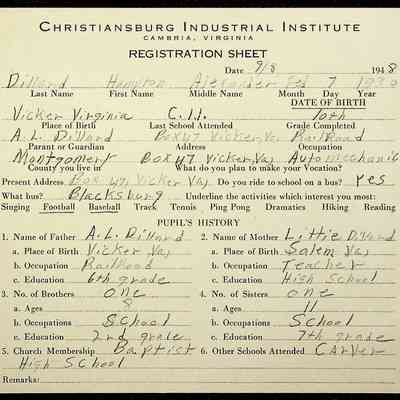 CHRISTIANSBURG INDUSTRIAL INSTITUTE
CAMBRIA, VIRGINIA
REGISTRATION SHEET
Date 9/8 1948
Dillard Hamilton Alexander Feb 7 1933
Last Name First Name Middle Name Month Day Year
DATE OF BIRTH
Vicker Virginia C.I.I. 10th
Place of Birth Last School Attended Grade Completed
A. L. Dillard Box 47 Vicker, Va, RailRoad
Parant or Guardian Address Occupation
Montgomery Box 47 Vicker, Va, Auto mechanic
County you live in What do you plan to make your Vocation?
Present Address Box 47, Vicker Va, Do you ride to school on a bus? Yes
What bus? Blacksburg Underline the activities which interest you most:
Singing Football Baseball Track Tennis Ping Pong Dramatics Hiking Reading
PUPIL'S HISTORY
1. Name of Father A. L. Dillard 2. Name of Mother Littie Dillard
a. Place of Birth Vicker Va, a. Place of Birth Salem Va,
b. Occupation Railroad b. Occupation Teacher
c. Education 6th grade c. Education High School
3. No. of Brothers one 4. No. of Sisters one
a. Ages 8 a. Ages 11
b. Occupations School b. Occupations School
c. Education 2nd grade c. Education 7th grade
5. Church Membership Baptist 6. Other Schools Attended Carver
High School
Remarks: